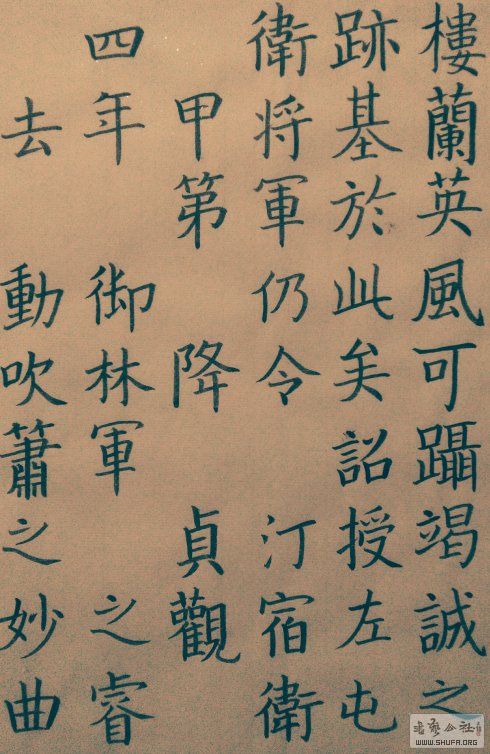 樓蘭英風可躡竭誠之
跡基於此矣詔授左屯
衛將軍仍令 汀宿衛
甲第 降 貞觀
四年 御林軍 之睿
去 動吹簫之妙曲
WWW.SHUFA.ORG